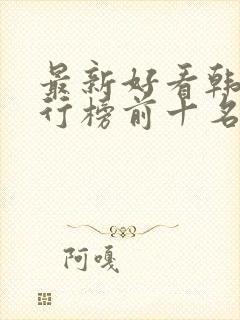 最新好看韩
行榜前十名
阿嘎